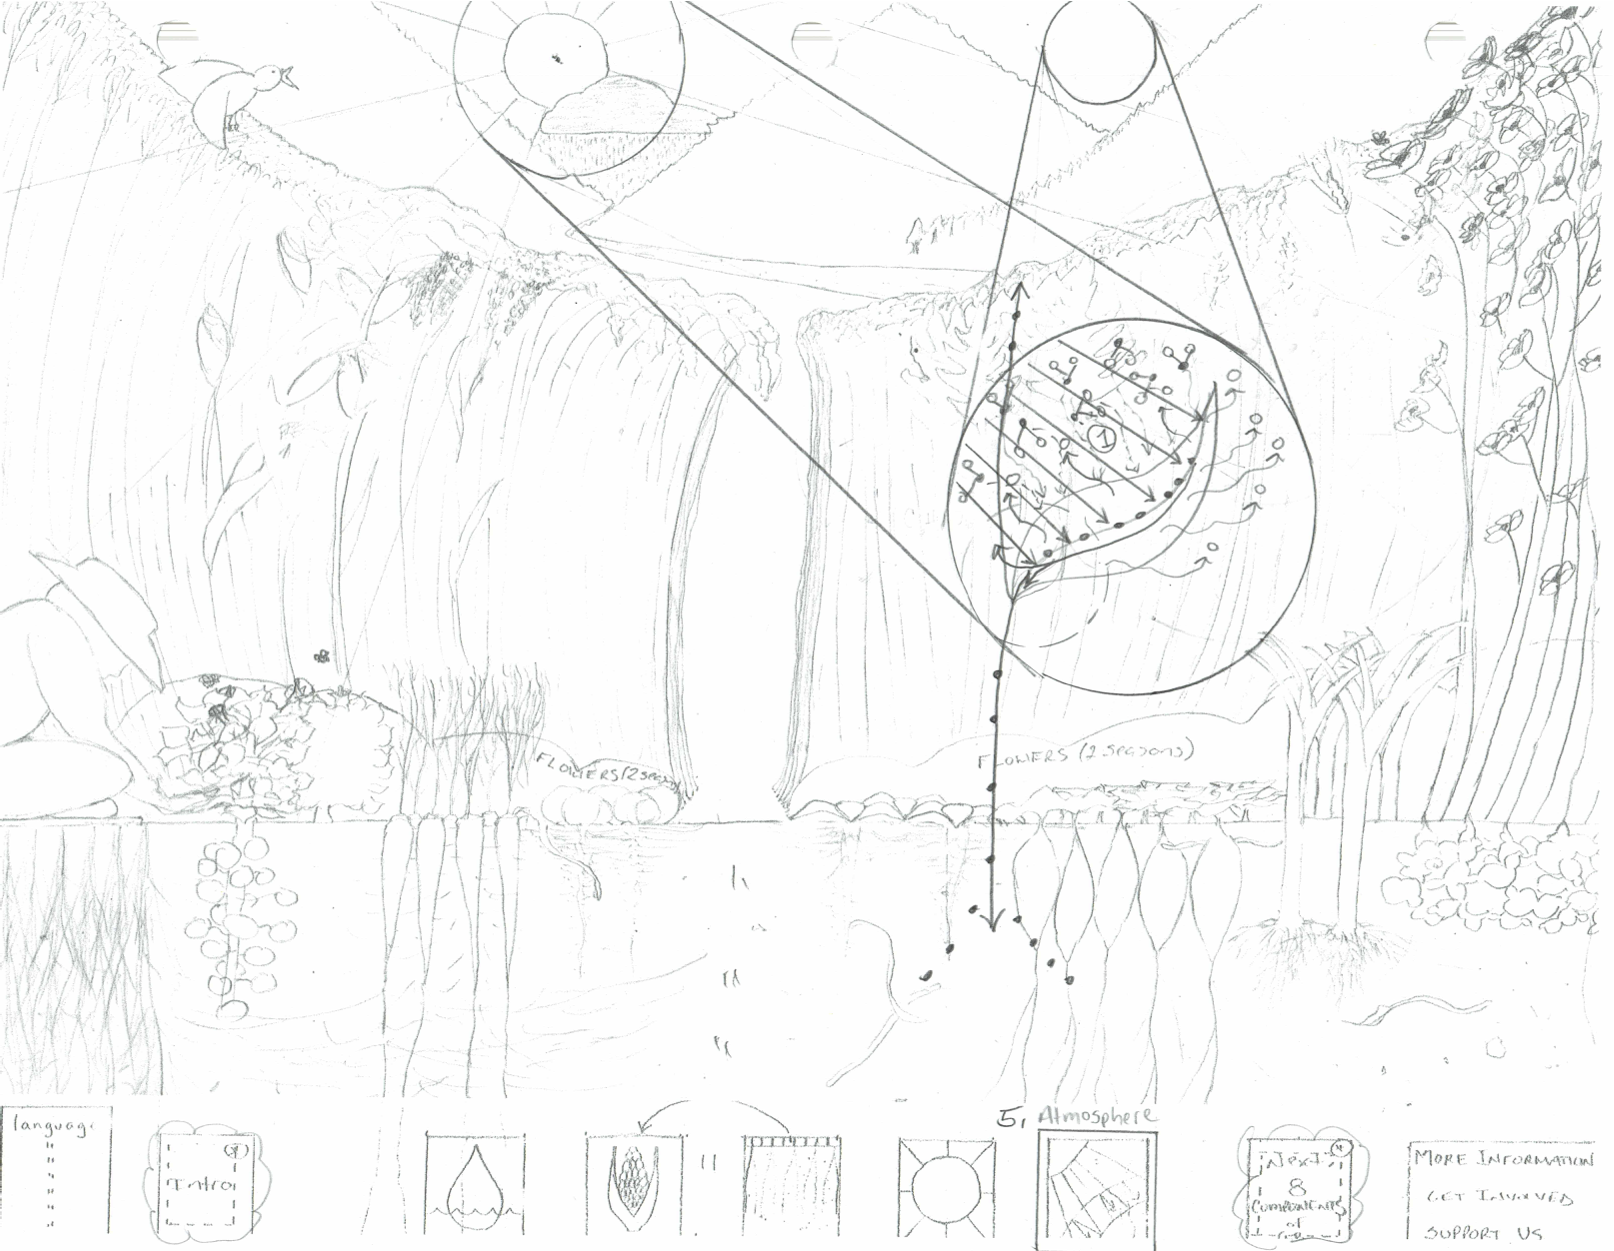 1
FLOWERS (2 seasons)
FLOWERS (2 seasons)
language
Intro
5. Atmosphere
Next
8
Components
of
MORE INFORMATION
GET INVOLVED
SUPPORT US